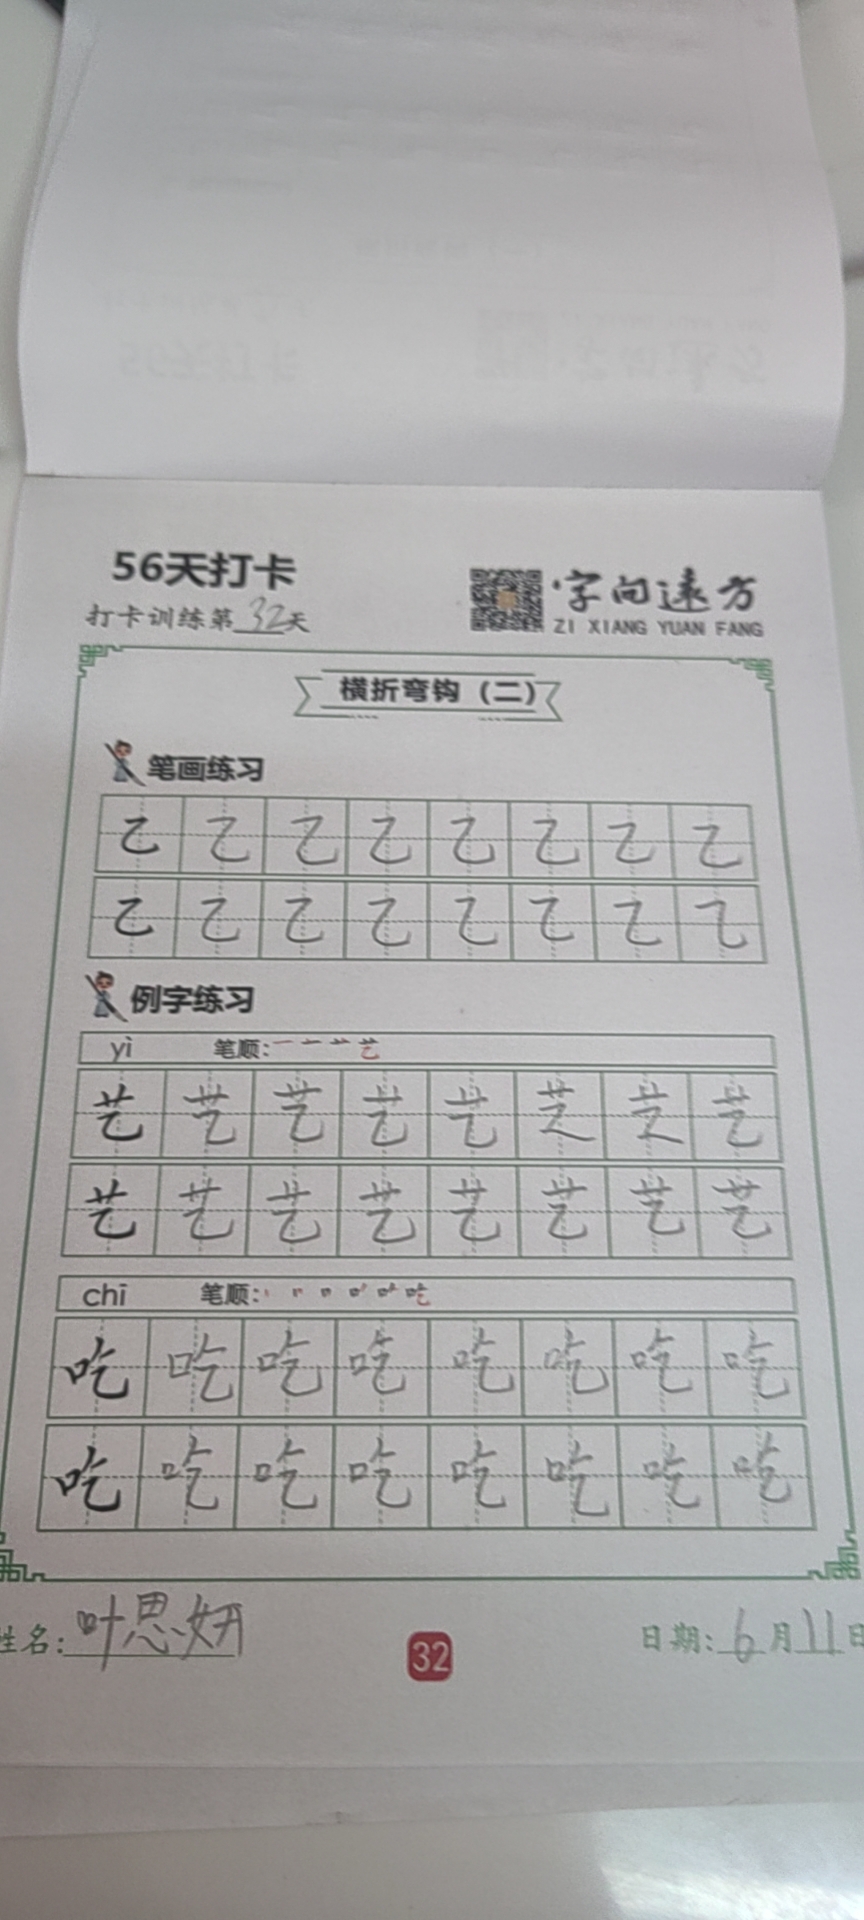 56天打卡
字向远方
打卡训练第32天
ZI XIANG YUAN FANG
横折弯钩（二）
笔画练习
乙 乙 乙 乙 乙 乙 乙 乙
乙 乙 乙 乙 乙 乙 乙 乙
例字练习
yì 笔顺: 艺
艺 艺 艺 艺 艺 艺 艺 艺
艺 艺 艺 艺 艺 艺 艺 艺
chī 笔顺: 吃
吃 吃 吃 吃 吃 吃 吃 吃
吃 吃 吃 吃 吃 吃 吃 吃
姓名:叶思妍
32
日期:6月11日